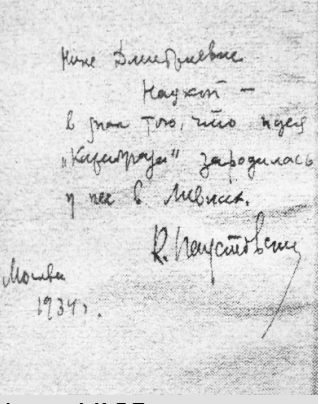 Нине Дмитриевне
Нацкой —
в знак того, что идея
„Кара-Бугаза“ зародилась
у нее в Ливнах.
К. Паустовский
Москва
1934 г.